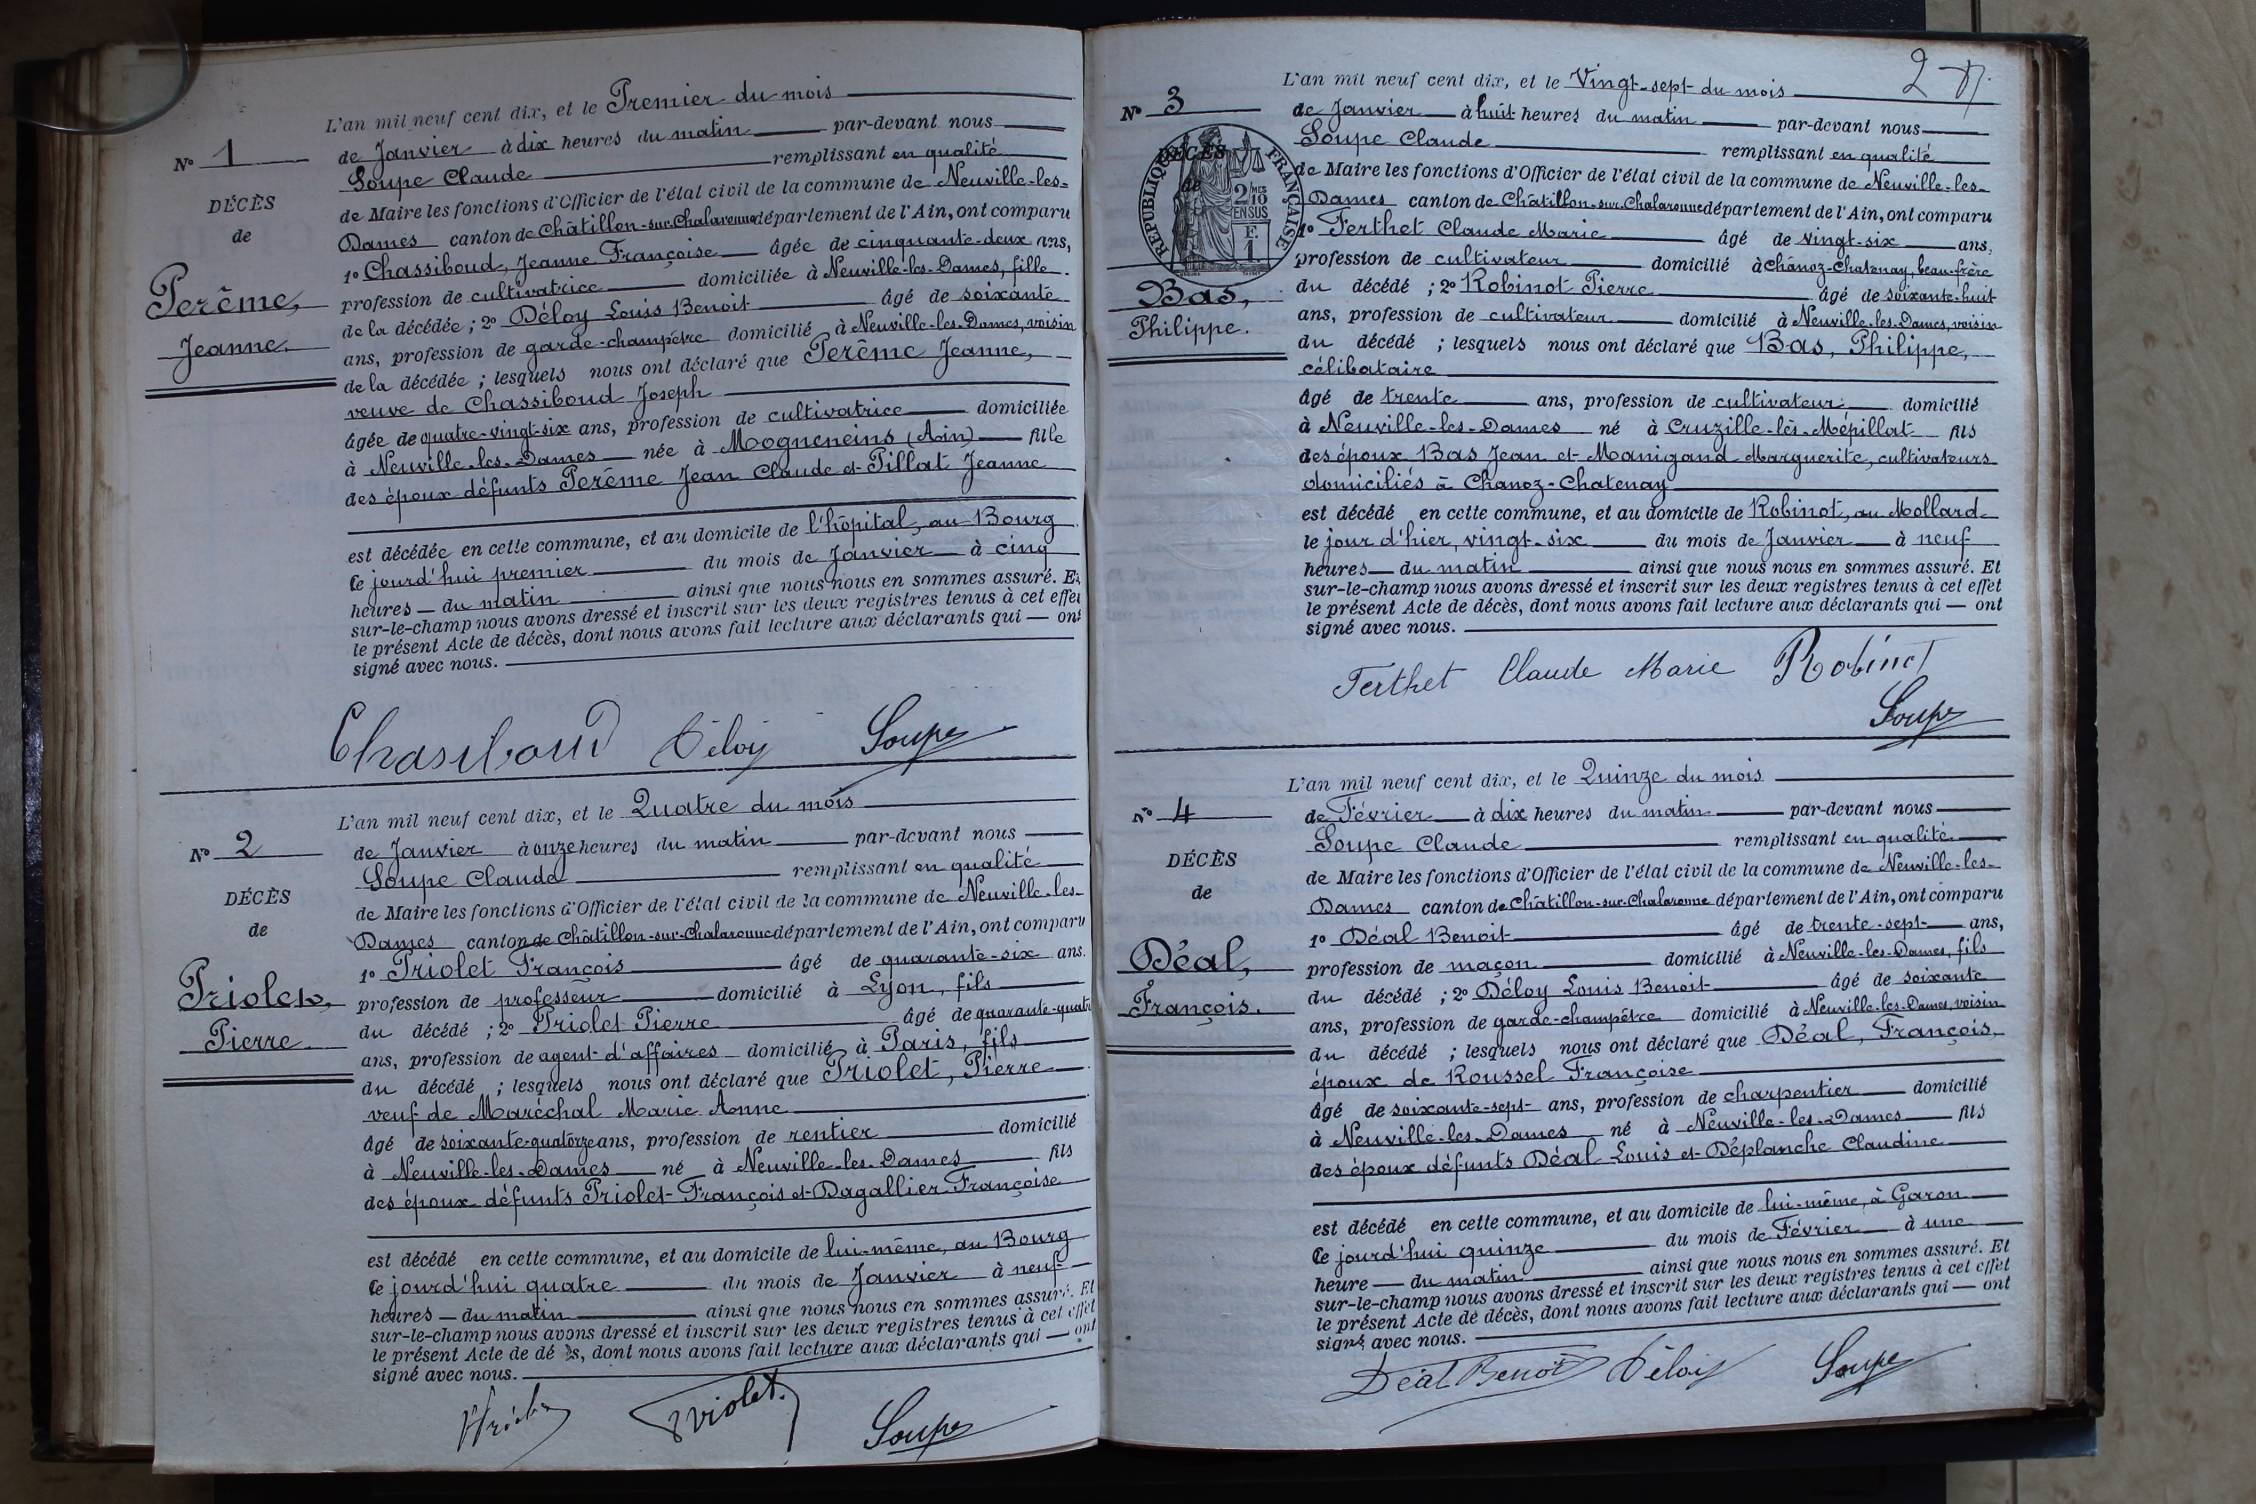 L'an mil neuf cent dix, et le Premier du mois
No 1
de Janvier à dix heures du matin par-devant nous
Soupe Claude remplissant en qualité
DÉCÈS
de Maire les fonctions d'Officier de l'état civil de la commune de Neuville-les-
de
Dames canton de Châtillon-sur-Chalaronne département de l'Ain, ont comparu
1o Chassiboud, Jeanne Françoise âgée de cinquante-deux ans,
Perême,
Jeanne.
profession de cultivatrice domiciliée à Neuville-les-Dames, fille
de la décédée ; 2o Déloy Louis Benoit âgé de soixante
ans, profession de garde-champêtre domicilié à Neuville-les-Dames, voisin
de la décédée ; lesquels nous ont déclaré que Perême Jeanne,
veuve de Chassiboud Joseph
âgée de quatre-vingt-six ans, profession de cultivatrice domiciliée
à Neuville-les-Dames née à Mogneneins (Ain) fille
des époux défunts Perême Jean Claude et Pillat Jeanne
est décédée en cette commune, et au domicile de l'hôpital, au Bourg
Ce jourd'hui premier du mois de Janvier à cinq
heures du matin ainsi que nous nous en sommes assuré. Et
sur-le-champ nous avons dressé et inscrit sur les deux registres tenus à cet effet
le présent Acte de décès, dont nous avons fait lecture aux déclarants qui — ont
signé avec nous.
Chassiboud Déloy Soupe
L'an mil neuf cent dix, et le Quatre du mois
No 2
de Janvier à onze heures du matin par-devant nous
Soupe Claude remplissant en qualité
DÉCÈS
de Maire les fonctions d'Officier de l'état civil de la commune de Neuville-les-
de
Dames canton de Châtillon-sur-Chalaronne département de l'Ain, ont comparu
1o Triolet François âgé de quarante-six ans.
Triolet,
Pierre
profession de professeur domicilié à Lyon, fils
du décédé ; 2o Triolet Pierre âgé de quarante-quatre
ans, profession de agent d'affaires domicilié à Paris, fils
du décédé ; lesquels nous ont déclaré que Triolet, Pierre
veuf de Maréchal Marie Anne
âgé de soixante-quatorze ans, profession de rentier domicilié
à Neuville-les-Dames né à Neuville-les-Dames fils
des époux défunts Triolet François et Dagallier Françoise
est décédé en cette commune, et au domicile de lui-même, au Bourg
Ce jourd'hui quatre du mois de Janvier à neuf
heures du matin ainsi que nous nous en sommes assuré. Et
sur-le-champ nous avons dressé et inscrit sur les deux registres tenus à cet effet
le présent Acte de dé s, dont nous avons fait lecture aux déclarants qui — ont
signé avec nous.
Triolet Soupe
2
L'an mil neuf cent dix, et le Vingt-sept du mois
No 3
de Janvier à huit heures du matin par-devant nous
Soupe Claude remplissant en qualité
DÉCÈS
de
RÉPUBLIQUE FRANÇAISE
2/10 MES
EN SUS
F.
1
de Maire les fonctions d'Officier de l'état civil de la commune de Neuville-les-
Dames canton de Châtillon-sur-Chalaronne département de l'Ain, ont comparu
1o Ferthet Claude Marie âgé de vingt-six ans,
profession de cultivateur domicilié à Chânoz-Chatenay, beau-frère
Bas,
Philippe.
du décédé ; 2o Robinot Pierre âgé de soixante-huit
ans, profession de cultivateur domicilié à Neuville-les-Dames, voisin
du décédé ; lesquels nous ont déclaré que Bas, Philippe,
célibataire
âgé de trente ans, profession de cultivateur domicilié
à Neuville-les-Dames né à Cruzille-lès-Mépillat fils
des époux Bas Jean et Manigand Marguerite, cultivateurs
domiciliés à Chanoz-Chatenay
est décédé en cette commune, et au domicile de Robinot, au Mollard
le jour d'hier, vingt-six du mois de Janvier à neuf
heures du matin ainsi que nous nous en sommes assuré. Et
sur-le-champ nous avons dressé et inscrit sur les deux registres tenus à cet effet
le présent Acte de décès, dont nous avons fait lecture aux déclarants qui — ont
signé avec nous.
Ferthet Claude Marie Robinot
Soupe
L'an mil neuf cent dix, et le Quinze du mois
No 4
de Février à dix heures du matin par-devant nous
Soupe Claude remplissant en qualité
DÉCÈS
de Maire les fonctions d'Officier de l'état civil de la commune de Neuville-les-
de
Dames canton de Châtillon-sur-Chalaronne département de l'Ain, ont comparu
1o Déal Benoit âgé de trente-sept ans,
Déal,
François.
profession de maçon domicilié à Neuville-les-Dames, fils
du décédé ; 2o Déloy Louis Benoit âgé de soixante
ans, profession de garde-champêtre domicilié à Neuville-les-Dames, voisin
du décédé ; lesquels nous ont déclaré que Déal, François,
époux de Roussel Françoise
âgé de soixante-sept ans, profession de charpentier domicilié
à Neuville-les-Dames né à Neuville-les-Dames fils
des époux défunts Déal Louis et Déplanche Claudine
est décédé en cette commune, et au domicile de lui-même, à Garon
Ce jourd'hui quinze du mois de Février à une
heure du matin ainsi que nous nous en sommes assuré. Et
sur-le-champ nous avons dressé et inscrit sur les deux registres tenus à cet effet
le présent Acte de décès, dont nous avons fait lecture aux déclarants qui — ont
signé avec nous.
Déal Benoit Déloy Soupe